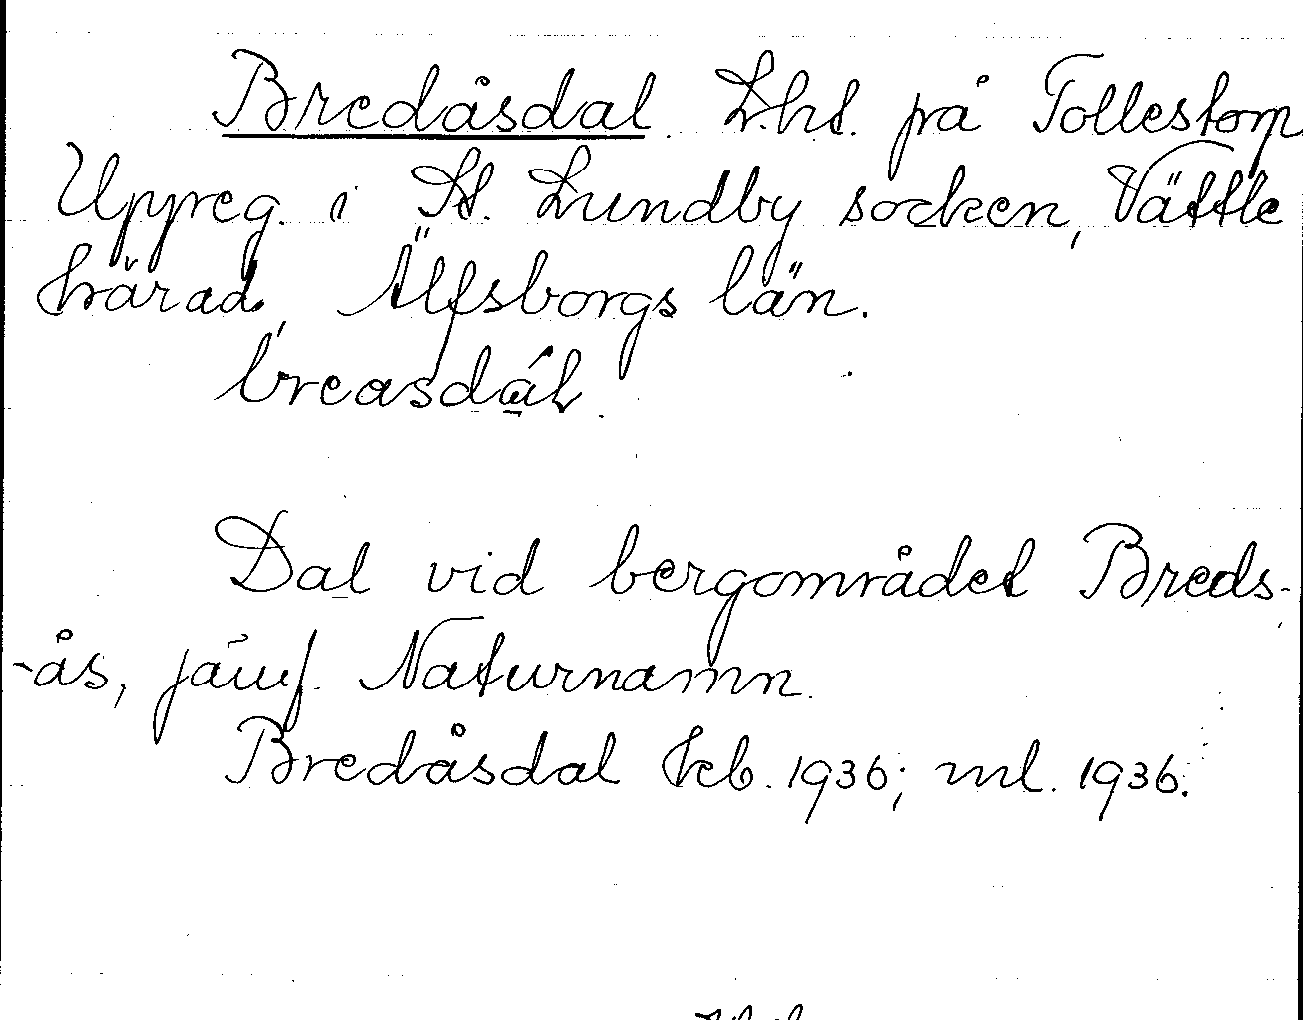 Bredåsdal. L.ht. på Tollestorp
Uppreg. i St. Lundby socken, Vättle
härad, Älfsborgs län.
breasdál.
Dal vid bergområdet Breds-
-ås, jämf. Naturnamn.
Bredåsdal Kb. 1936; ml. 1936.